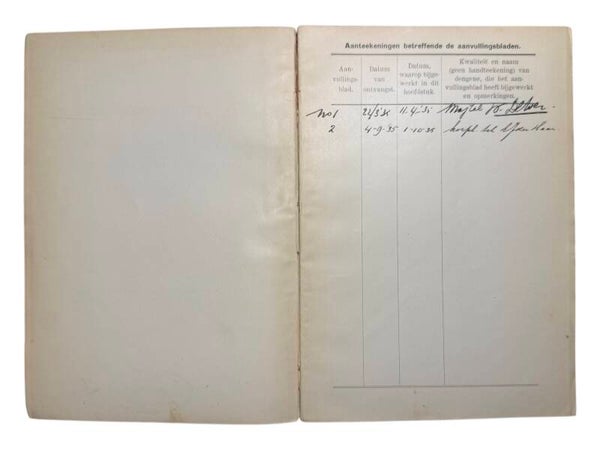 Aanteekeningen betreffende de aanvullingsbladen.
Aan-
vullings-
blad.
Datum
van
ontvangst.
Datum,
waarop bijge-
werkt in dit
hoofdstuk.
Kwaliteit en naam
(geen handteekening) van
dengene, die het aan-
vullingsblad heeft bijgewerkt
en opmerkingen.
No 1
2 4-9-35 1-10-35